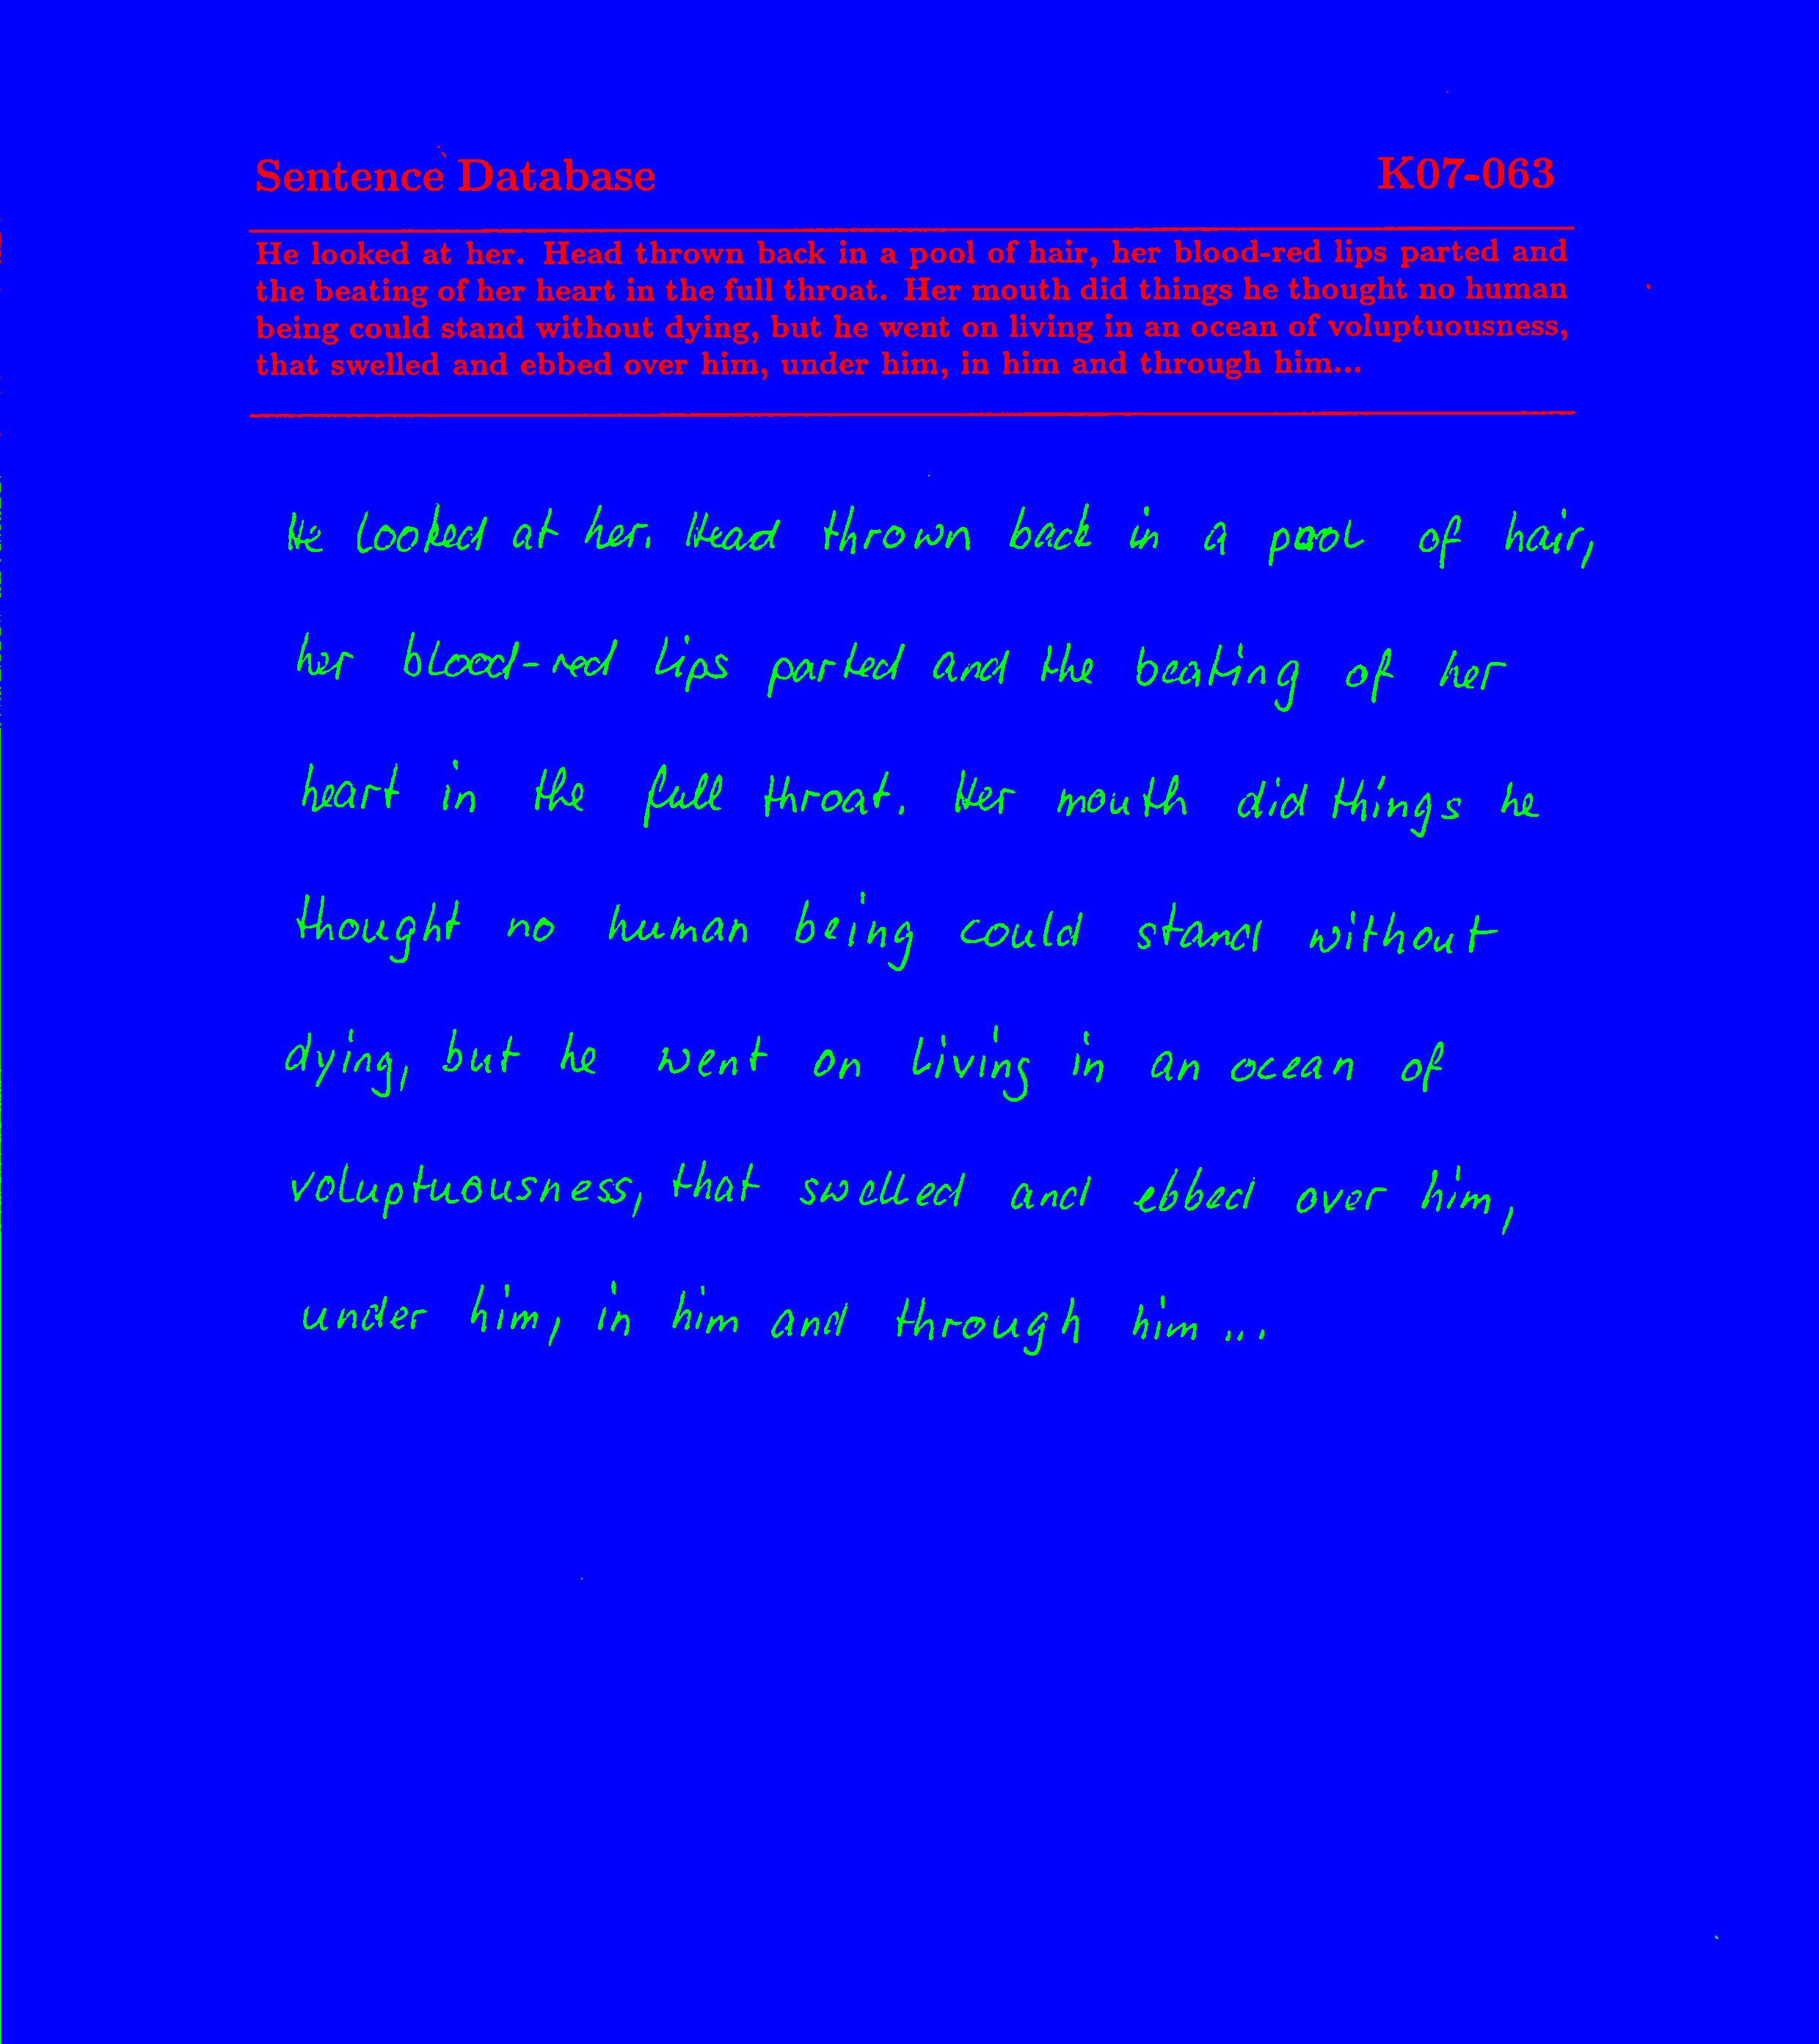 Sentence Database K07-063
He looked at her. Head thrown back in a pool of hair, her blood-red lips parted and
the beating of her heart in the full throat. Her mouth did things he thought no human
being could stand without dying, but he went on living in an ocean of voluptuousness,
that swelled and ebbed over him, under him, in him and through him...
He looked at her. Head thrown back in a pool of hair,
her blood-red lips parted and the beating of her
heart in the full throat. Her mouth did things he
thought no human being could stand without
dying, but he went on living in an ocean of
voluptuousness, that swelled and ebbed over him,
under him, in him and through him...